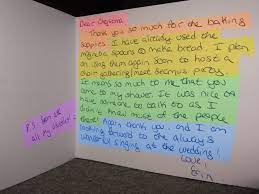 Dear Christina
Thank you so much for the baking
supplies. I have already used the
magnetic spoons to make bread. I plan
on using them again soon to host a
choir gathering/meet
party.
It means so much to me that you
came to my shower. It was nice to
have someone to talk to as I
didn't know most of the people
there! Again thank you, and I am
looking forward to the always
wonderful singing at the wedding!
Love,
Erin
P.S. Bon
all my